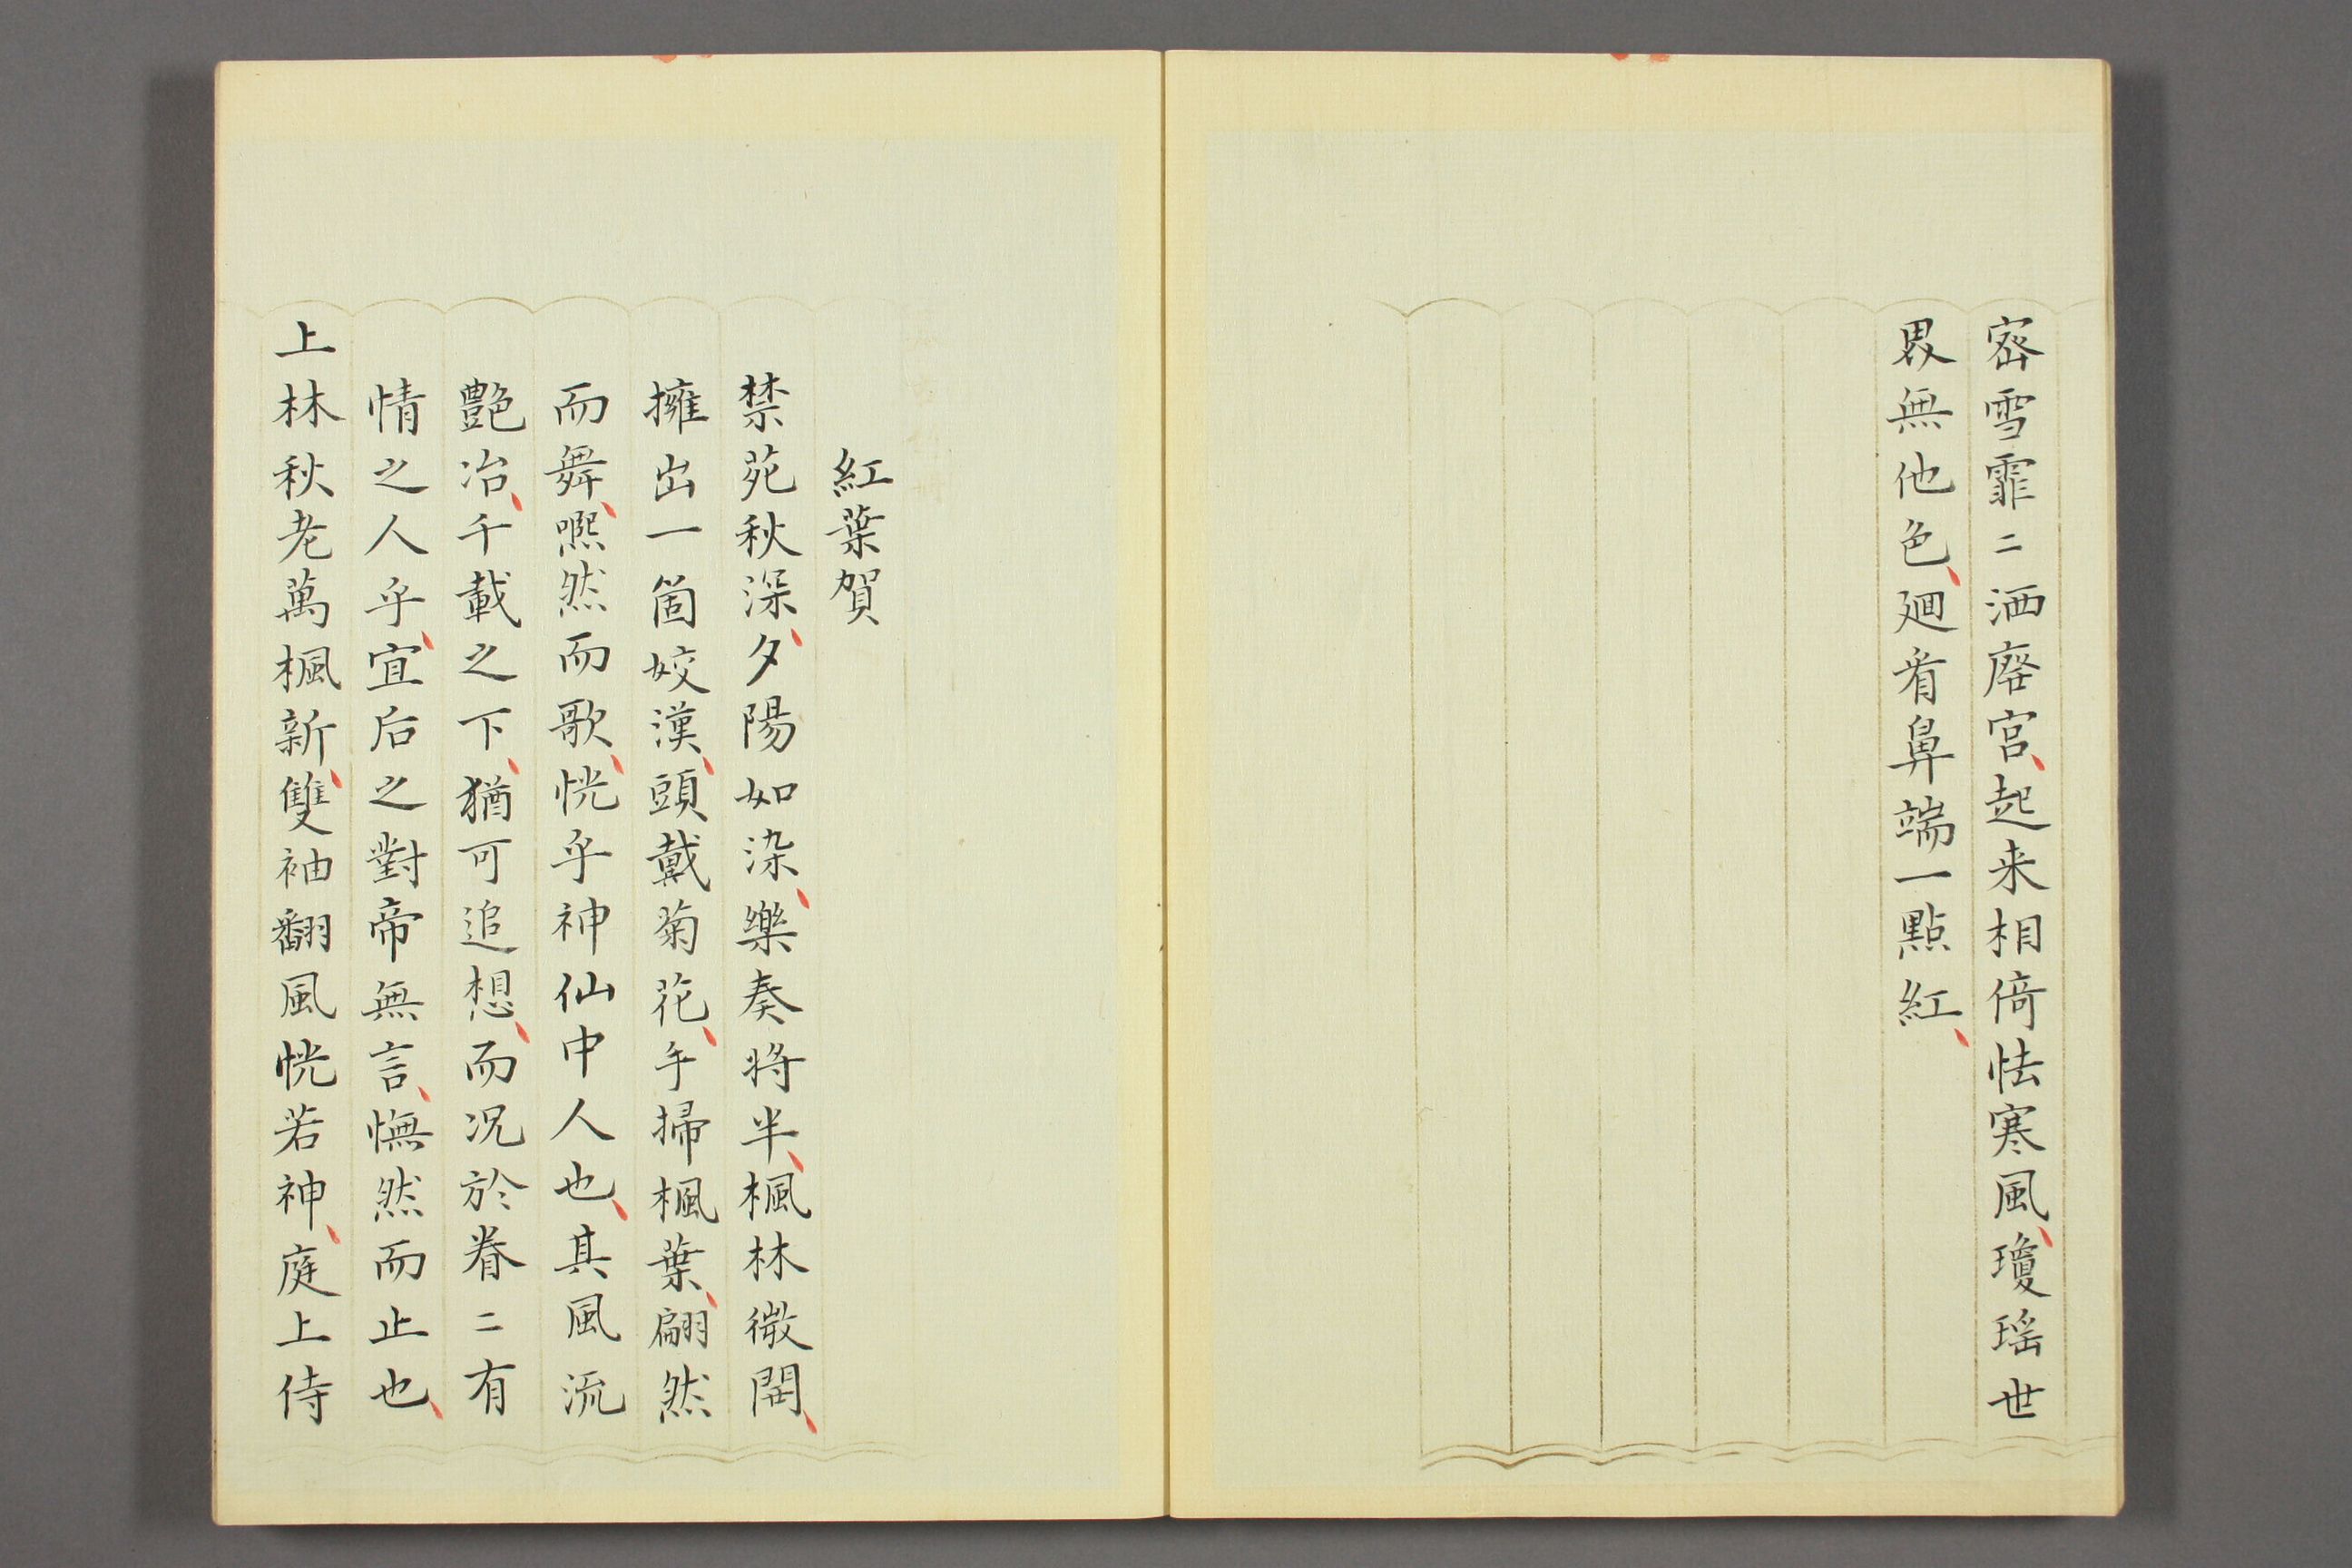 密雪霏〻洒廢宮起来相倚怯寒風瓊瑶世
界無他色廻看鼻端一點紅
紅葉賀
禁苑秋深夕陽如染樂奏將半楓林微開
擁出一箇姣漢頭戴菊花手掃楓葉翩然
而舞嘅然而歌恍乎神仙中人也其風流
艶冶千載之下猶可追想而況於眷〻有
情之人乎宜后之對帝無言憮然而止也
上林秋老萬楓新雙袖翻風恍若神庭上侍